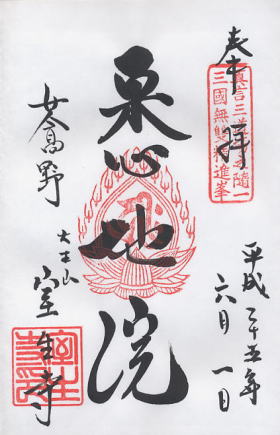 奉拝
真言三
隨一
三國無雙精進峯
平成二十五年
六月一日
悉地院
女人高野
大本山
室生寺